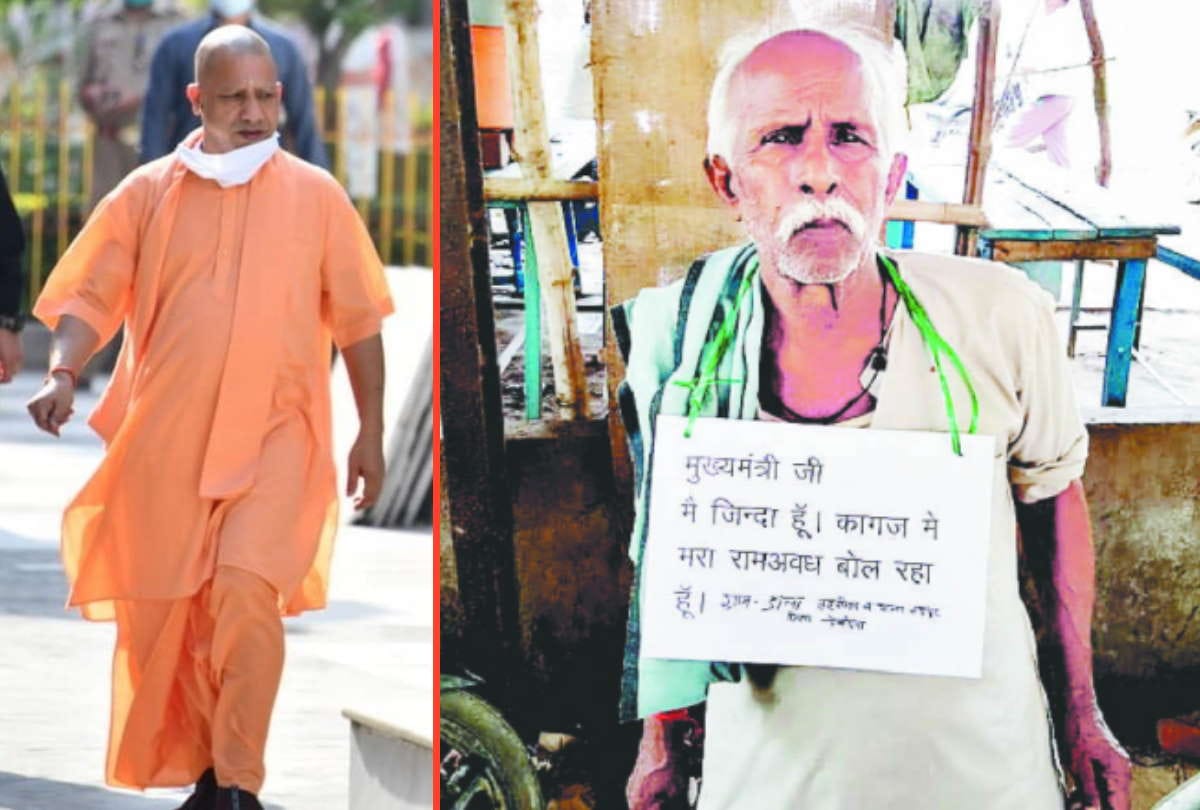 मुख्यमंत्री जी
मै जिन्दा हूँ। कागज मे
मरा रामअवध बोल रहा
हूँ। ग्राम- तहसील व थाना
जिला